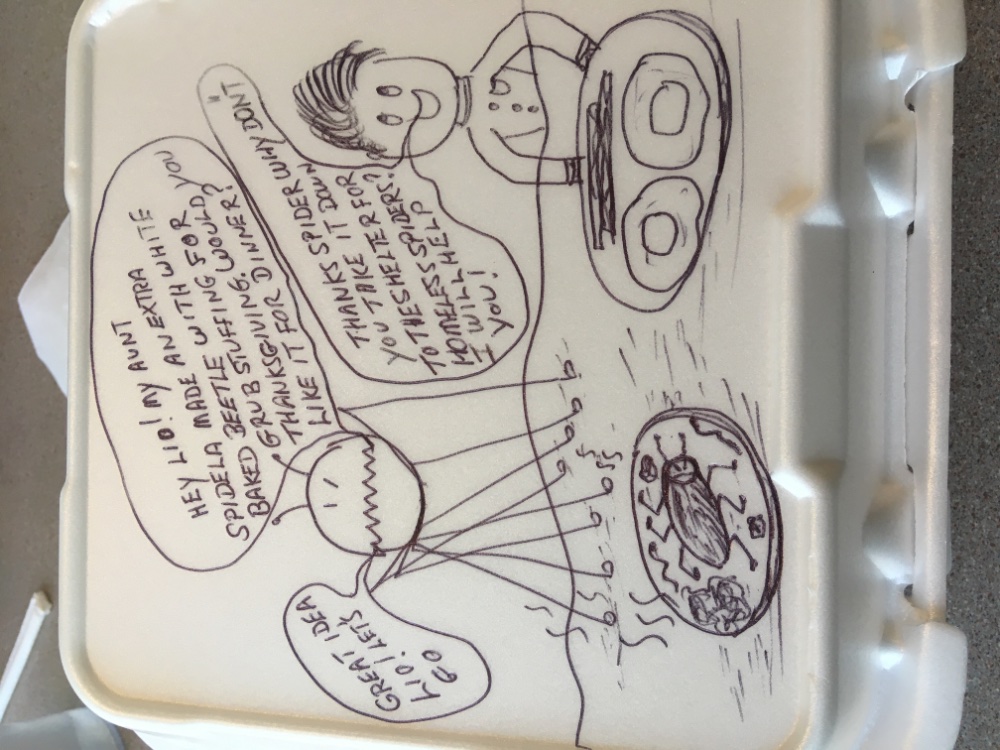 HEY LIO! MY AUNT
SPIDELA MADE AN EXTRA
BAKED BEETLE WITH WHITE
GRUB STUFFING FOR
THANKSGIVING, WOULD YOU
LIKE IT FOR DINNER?
THANKS SPIDER WHY DON'T
YOU TAKE IT DOWN
TO THE SHELTER FOR
HOMELESS SPIDERS?
I WILL HELP
YOU!
GREAT IDEA
LIO! LET'S
GO